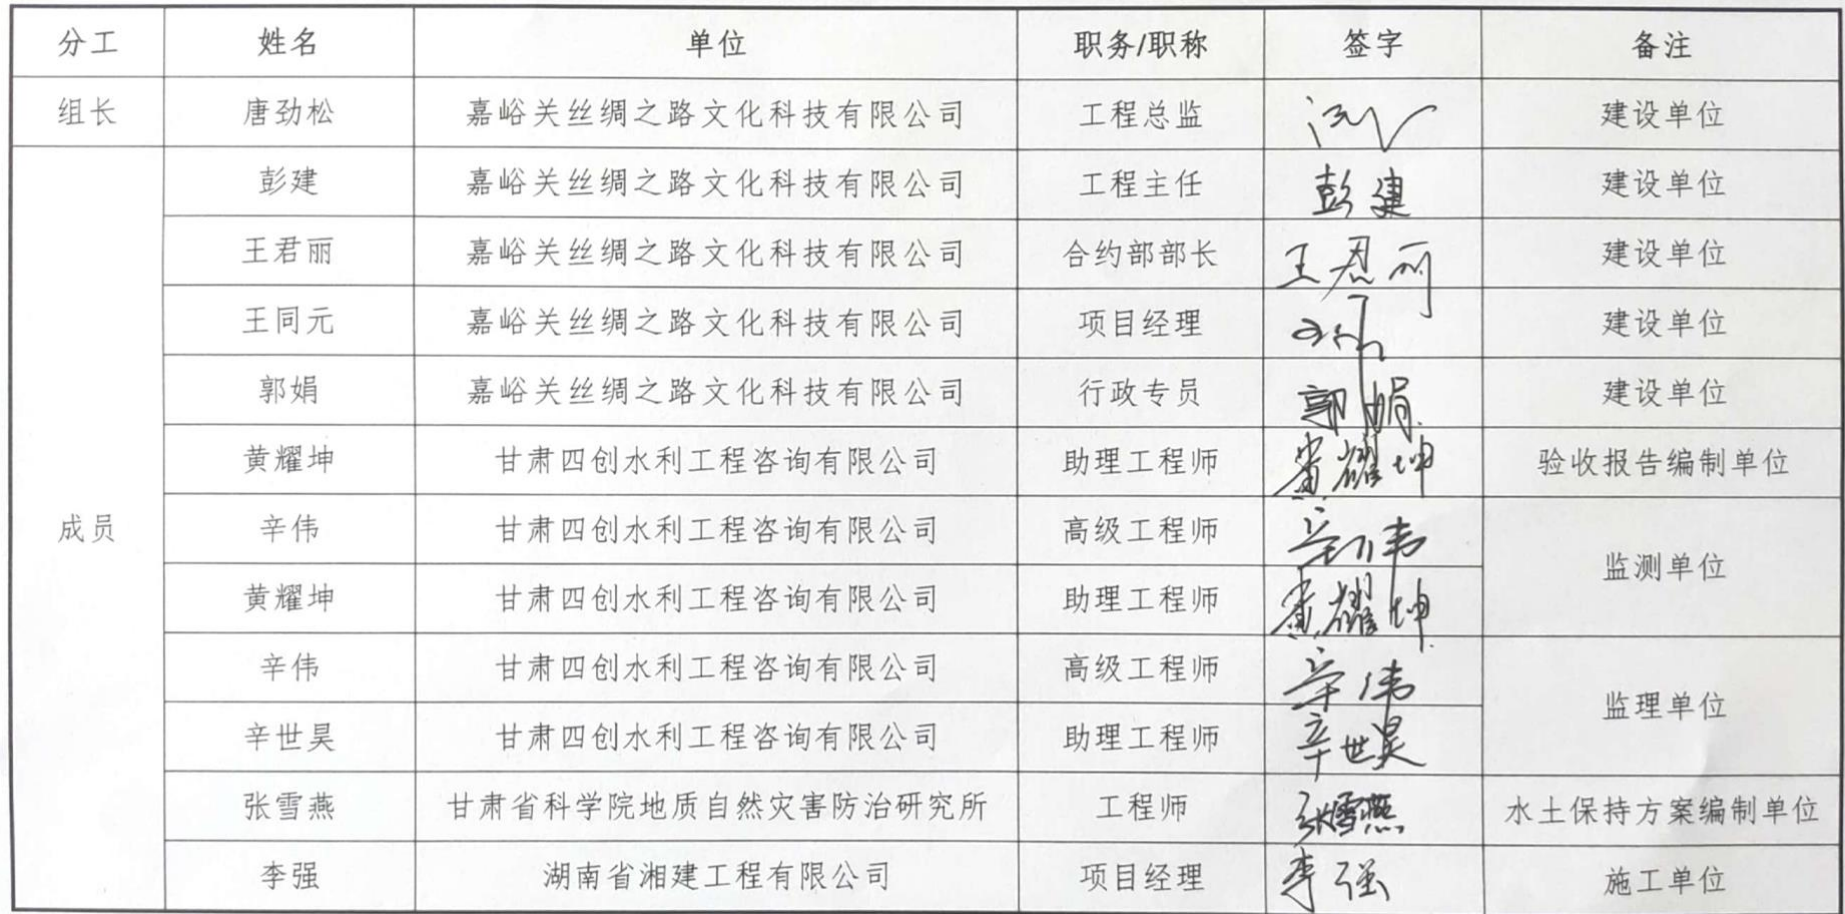 分工 姓名 单位 职务/职称 签字 备注
组长 唐劲松 嘉峪关丝绸之路文化科技有限公司 工程总监 建设单位
彭建 嘉峪关丝绸之路文化科技有限公司 工程主任 彭建 建设单位
王君丽 嘉峪关丝绸之路文化科技有限公司 合约部部长 王君丽 建设单位
王同元 嘉峪关丝绸之路文化科技有限公司 项目经理 建设单位
郭娟 嘉峪关丝绸之路文化科技有限公司 行政专员 郭娟 建设单位
黄耀坤 甘肃四创水利工程咨询有限公司 助理工程师 黄耀坤 验收报告编制单位
成员 辛伟 甘肃四创水利工程咨询有限公司 高级工程师 辛伟 监测单位
黄耀坤 甘肃四创水利工程咨询有限公司 助理工程师 黄耀坤
辛伟 甘肃四创水利工程咨询有限公司 高级工程师 辛伟 监理单位
辛世昊 甘肃四创水利工程咨询有限公司 助理工程师 辛世昊
张雪燕 甘肃省科学院地质自然灾害防治研究所 工程师 张雪燕 水土保持方案编制单位
李强 湖南省湘建工程有限公司 项目经理 李强 施工单位